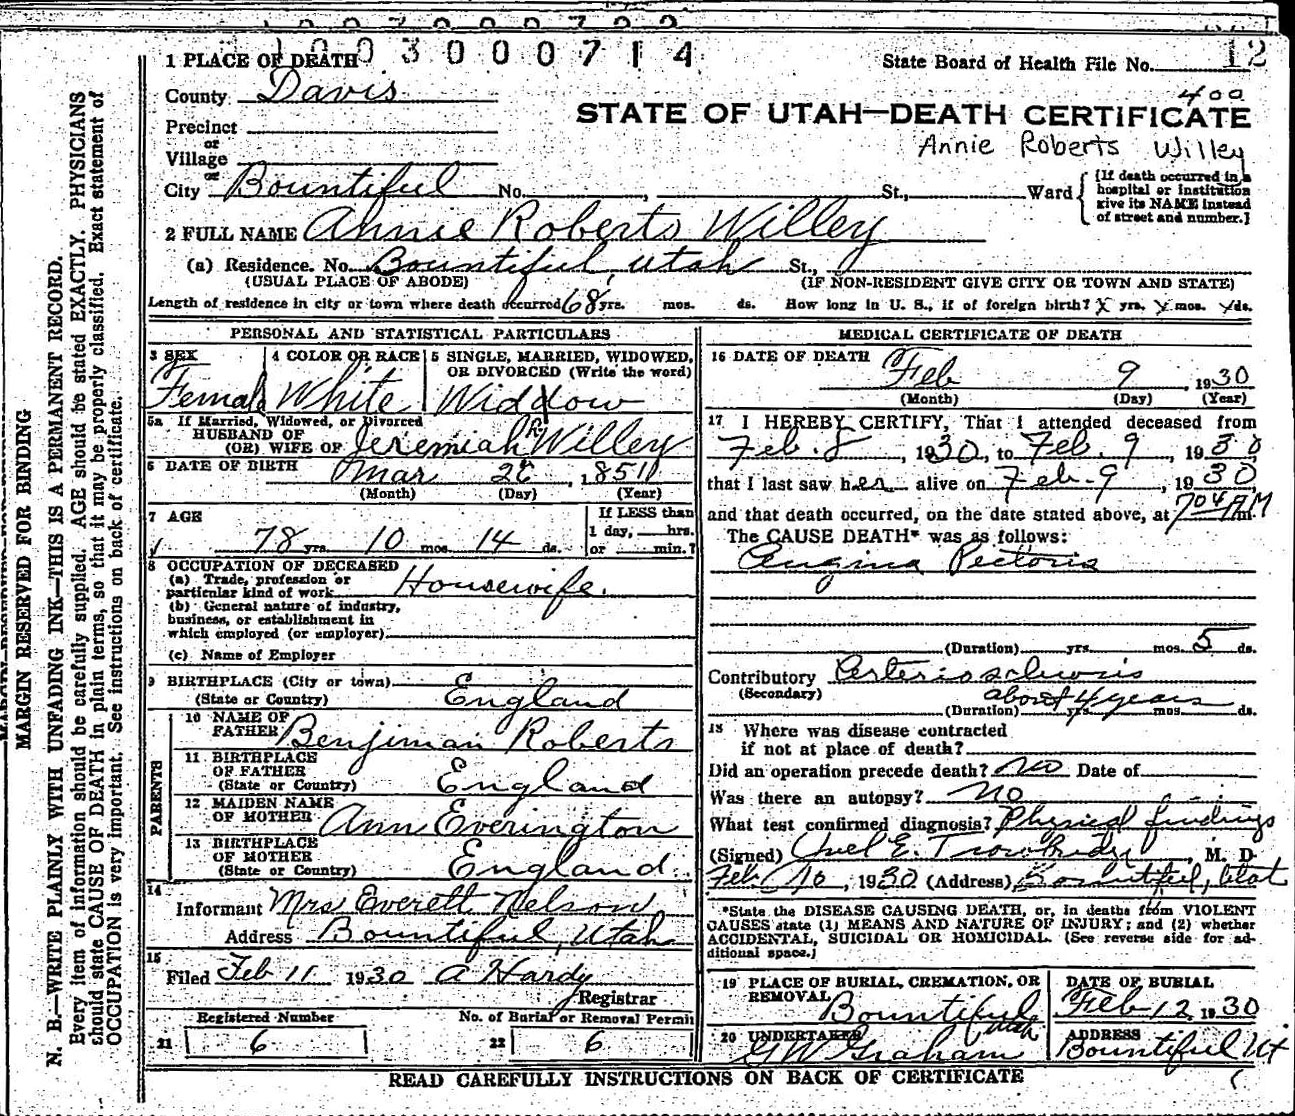 1003000714
12
1 PLACE OF DEATH
State Board of Health File No.
County Davis
400
STATE OF UTAH—DEATH CERTIFICATE
Precinct
or
Village
or
Annie Roberts Willey
City Bountiful No. , St., Ward
[If death occurred in a hospital or institution give its NAME instead of street and number.]
2 FULL NAME Annie Roberts Willey
(a) Residence. No. Bountiful, Utah St.,
(USUAL PLACE OF ABODE) (IF NON-RESIDENT GIVE CITY OR TOWN AND STATE)
Length of residence in city or town where death occurred 68 yrs. mos. ds. How long in U. S., if of foreign birth? X yrs. X mos. X ds.
PERSONAL AND STATISTICAL PARTICULARS
3 SEX
Female
4 COLOR OR RACE
White
5 SINGLE, MARRIED, WIDOWED,
OR DIVORCED (Write the word)
Widdow
5a If Married, Widowed, or Divorced
HUSBAND OF
(OR) WIFE OF Jeremiah Willey
6 DATE OF BIRTH Mar 26, 1851
(Month) (Day) (Year)
7 AGE
78 yrs. 10 mos. 14 ds.
If LESS than
1 day, hrs.
or min.?
8 OCCUPATION OF DECEASED
(a) Trade, profession or
particular kind of work Housewife.
(b) General nature of industry,
business, or establishment in
which employed (or employer)
(c) Name of Employer
9 BIRTHPLACE (City or town)
(State or Country) England
PARENTS
10 NAME OF
FATHER Benjiman Roberts
11 BIRTHPLACE
OF FATHER
(State or Country) England
12 MAIDEN NAME
OF MOTHER Ann Everington
13 BIRTHPLACE
OF MOTHER
(State or Country) England
14
Informant Mrs Everett Nelson
Address Bountiful, Utah
15
Filed Feb 11 1930 A Hardy
Registrar
Registered Number No. of Burial or Removal Permit
21 6 22 6
MEDICAL CERTIFICATE OF DEATH
16 DATE OF DEATH
Feb 9, 1930
(Month) (Day) (Year)
17 I HEREBY CERTIFY, That I attended deceased from
Feb. 8, 1930, to Feb. 9, 1930
that I last saw her alive on Feb-9, 1930
and that death occurred, on the date stated above, at 704 AM m.
The CAUSE DEATH* was as follows:
Angina Pectoris
(Duration) yrs. mos. 5 ds.
Contributory Arteriosclerosis
(Secondary)
about 4 years
(Duration) yrs. mos. ds.
18 Where was disease contracted
if not at place of death?
Did an operation precede death? No Date of
Was there an autopsy? No
What test confirmed diagnosis? Physical findings
(Signed) E. Trowbridge, M. D.
Feb 10, 1930 (Address) Bountiful, Utah
*State the DISEASE CAUSING DEATH, or, in deaths from VIOLENT
CAUSES state (1) MEANS AND NATURE OF INJURY; and (2) whether
ACCIDENTAL, SUICIDAL OR HOMICIDAL. (See reverse side for ad-
ditional space.)
19 PLACE OF BURIAL, CREMATION, OR
REMOVAL Bountiful
Utah
DATE OF BURIAL
Feb 12 1930
20 UNDERTAKER
G W Graham
ADDRESS
Bountiful Ut
READ CAREFULLY INSTRUCTIONS ON BACK OF CERTIFICATE
MARGIN RESERVED FOR BINDING
N. B.—WRITE PLAINLY WITH UNFADING INK—THIS IS A PERMANENT RECORD.
Every item of information should be carefully supplied. AGE should be stated EXACTLY. PHYSICIANS
should state CAUSE OF DEATH in plain terms, so that it may be properly classified. Exact statement of
OCCUPATION is very important. See instructions on back of certificate.